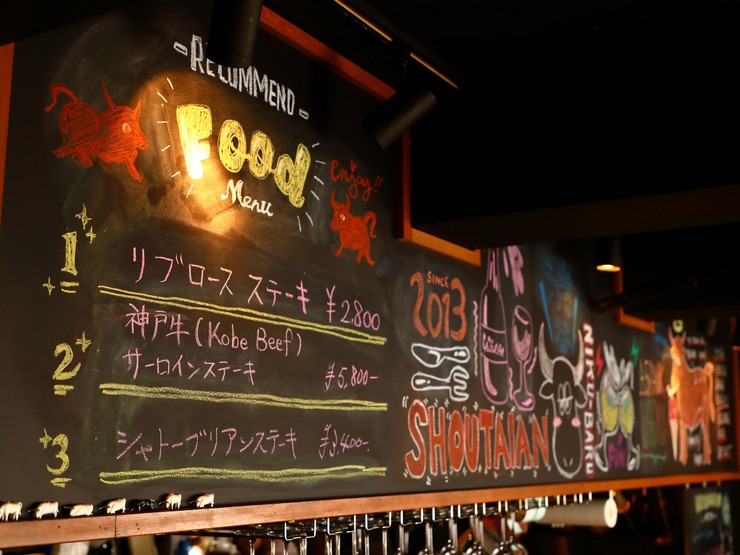 - RECOMMEND -
Food
Menu
enjoy!!
1
リブロース ステーキ ¥2.800
2
神戸牛(Kobe Beef)
サーロインステーキ ¥5,800-
3
シャトーブリアンステーキ
SINCE
2013
SHOUTAIAN
NIKU-BARU